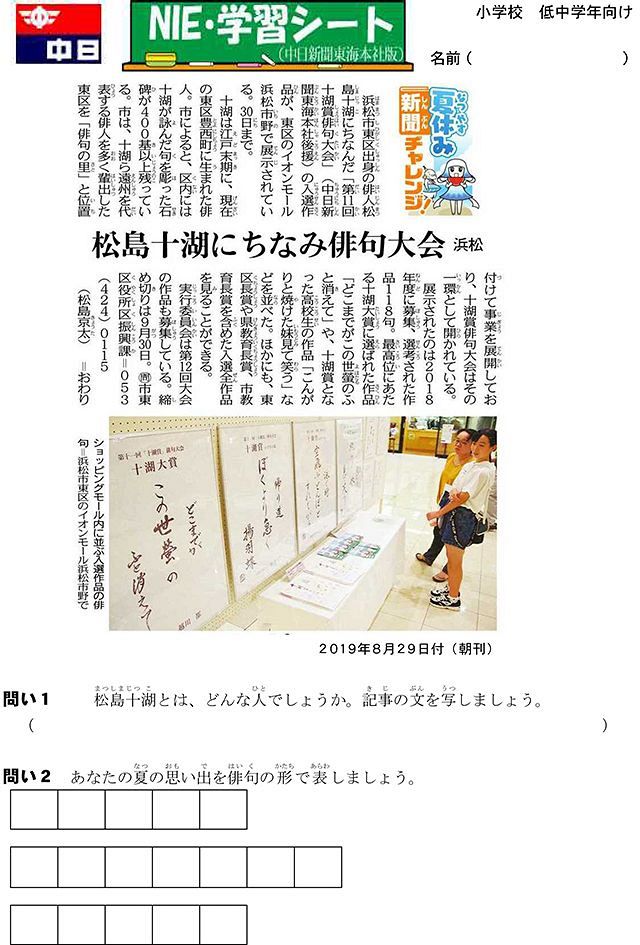 中日
NIE・学習シート
(中日新聞東海本社版)
小学校 低中学年向け
名前 ( )
夏休み
新聞
チャレンジ!
浜松市東区出身の俳人松
島十湖にちなんだ「第11回
十湖賞俳句大会」(中日新
聞東海本社後援)の入選作
品が、東区のイオンモール
浜松市野で展示されてい
る。30日まで。
十湖は江戸末期に、現在
の東区豊西町に生まれた俳
人。市によると、区内には
十湖が詠んだ句を彫った石
碑が400基以上残ってい
る。市は、十湖ら遠州を代
表する俳人を多く輩出した
東区を「俳句の里」と位置
松島十湖にちなみ俳句大会 浜松
付けて事業を展開してお
り、十湖賞俳句大会はその
一環として開かれている。
展示されたのは2018
年度に募集、選考された作
品118句。最高位にあた
る十湖大賞に選ばれた作品
「どこまでがこの世蛍のふ
と消えて」や、十湖賞とな
った高校生の作品「こんが
りと焼けた妹見て笑う」な
どを並べた。ほかにも、東
区長賞や県教育長賞、市教
育長賞を含めた入選全作品
を見ることができる。
実行委員会は第12回大会
の作品も募集している。締
め切りは9月30日。㉄市東
区役所区振興課=053
(424)0115
(松島京太) =おわり
第十一回「十湖賞」俳句大会
十湖大賞
どこまでが
この世蛍の
ふと消えて
十湖賞
帰り道
ぼくより急ぐ
ショッピングモール内に並ぶ入選作品の俳
句=浜松市東区のイオンモール浜松市野で
2019年8月29日付(朝刊)
問い1 松島十湖とは、どんな人でしょうか。記事の文を写しましょう。
( )
問い2 あなたの夏の思い出を俳句の形で表しましょう。